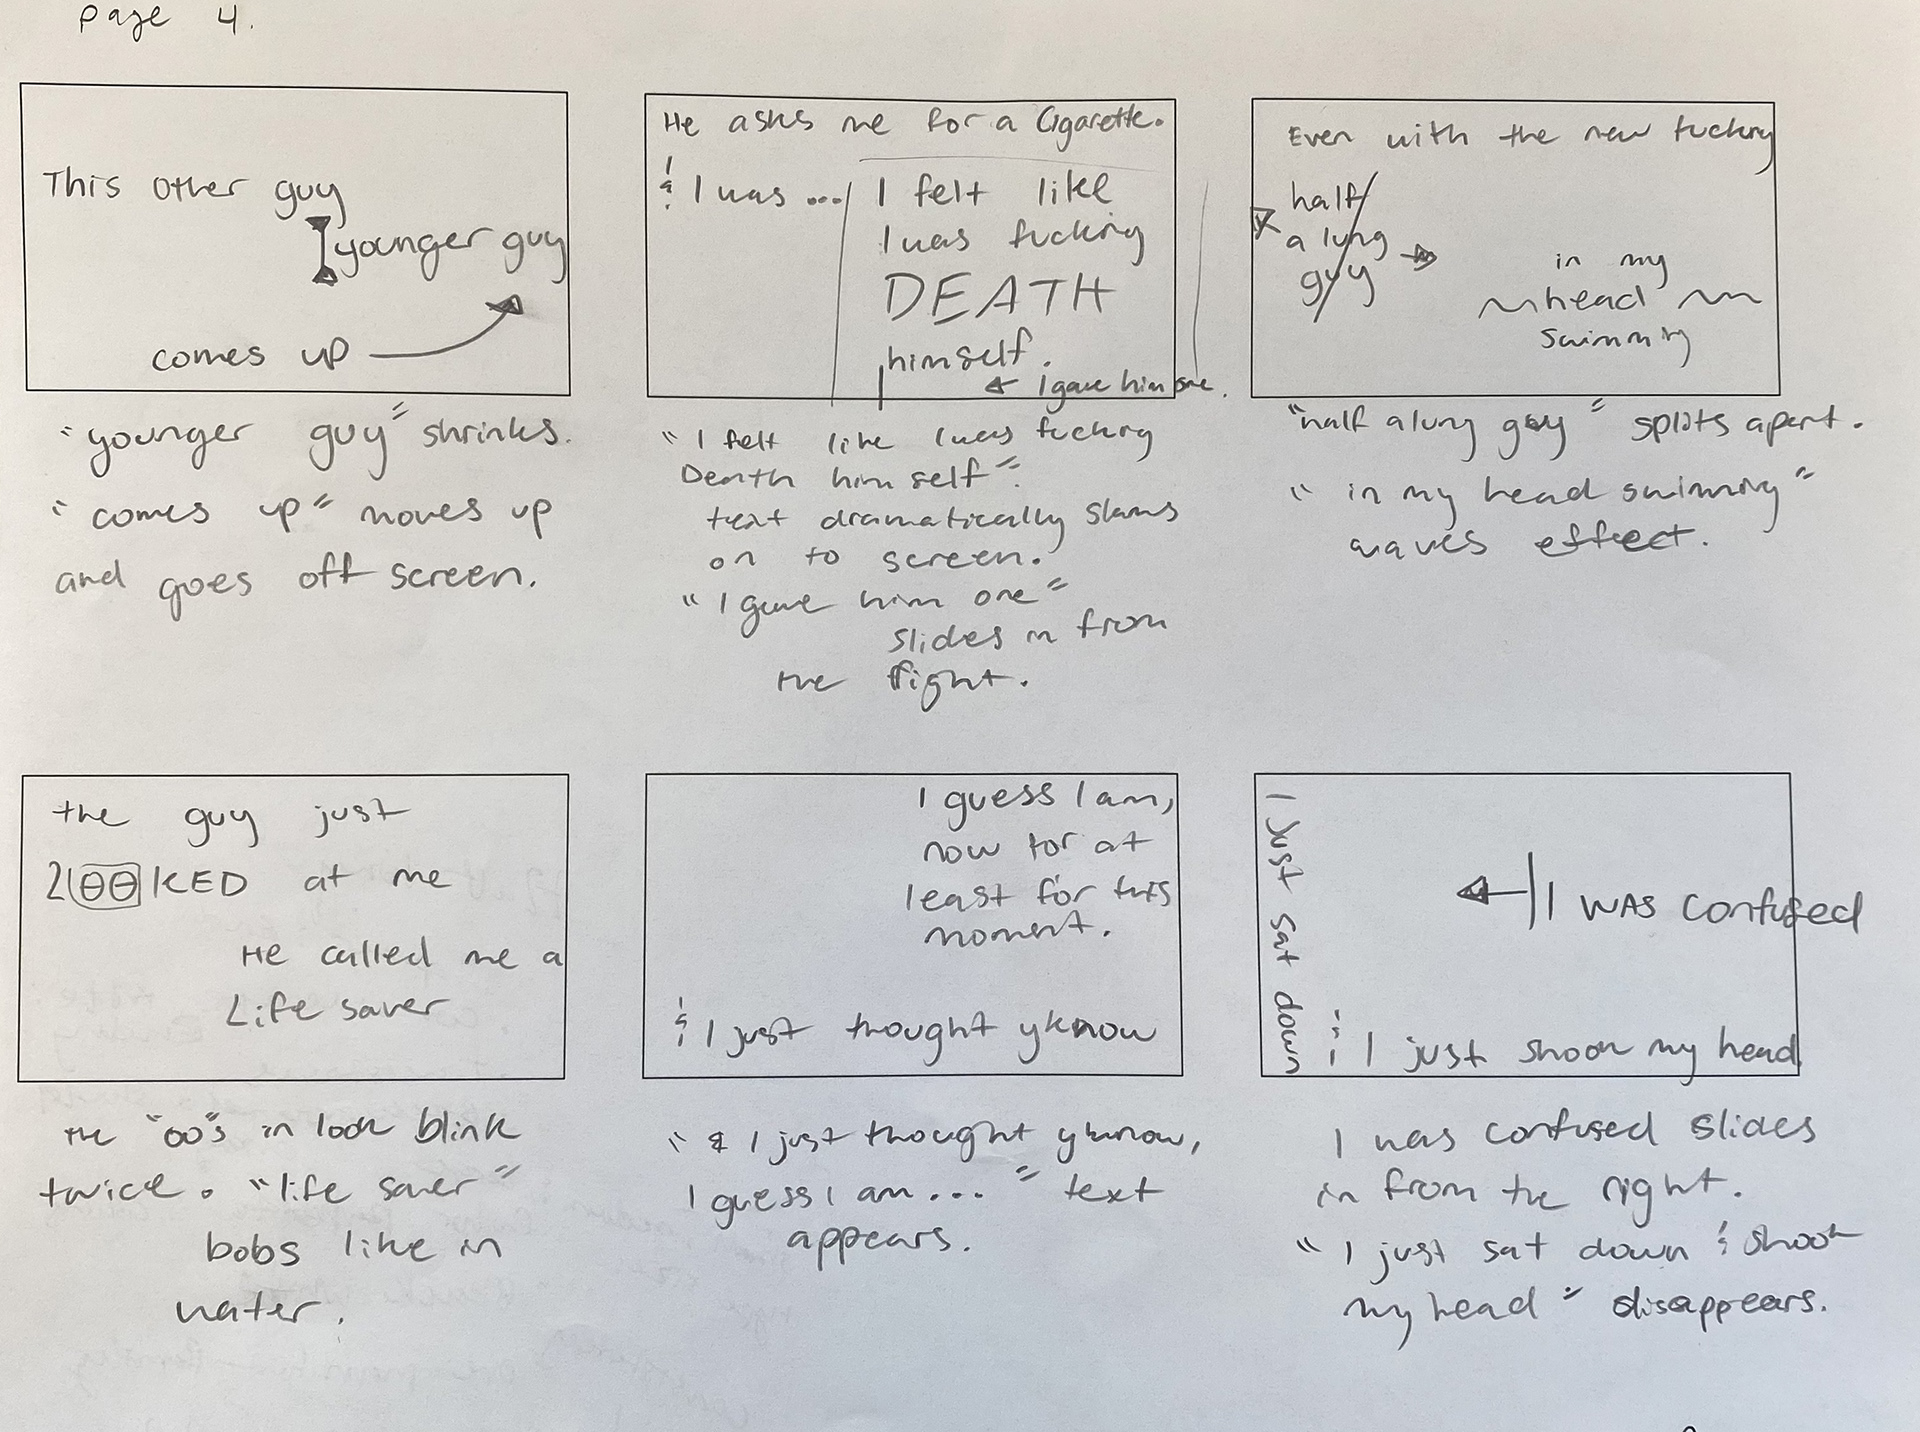 page 4.
This other guy
younger guy
comes up
"younger guy" shrinks.
"comes up" moves up
and goes off screen.
He asks me for a Cigarette.
& I was ...
I felt like
I was fucking
DEATH
himself.
I gave him one.
"I felt like I was fucking
Death himself".
text dramatically slams
on to screen.
"I gave him one"
slides in from
the right.
Even with the new fucking
half
a lung
guy
in my
head
swimming
"half a lung guy" splits apart.
"in my head swimming"
waves effect.
the guy just
LOOKED at me
He called me a
Life saver
the "oo"s in look blink
twice. "life saver"
bobs like in
water.
I guess I am,
now for at
least for this
moment.
& I just thought yknow
"& I just thought yknow,
I guess I am..." text
appears.
I just sat down
I WAS confused
& I just shook my head
I was confused slides
in from the right.
"I just sat down & shook
my head" disappears.